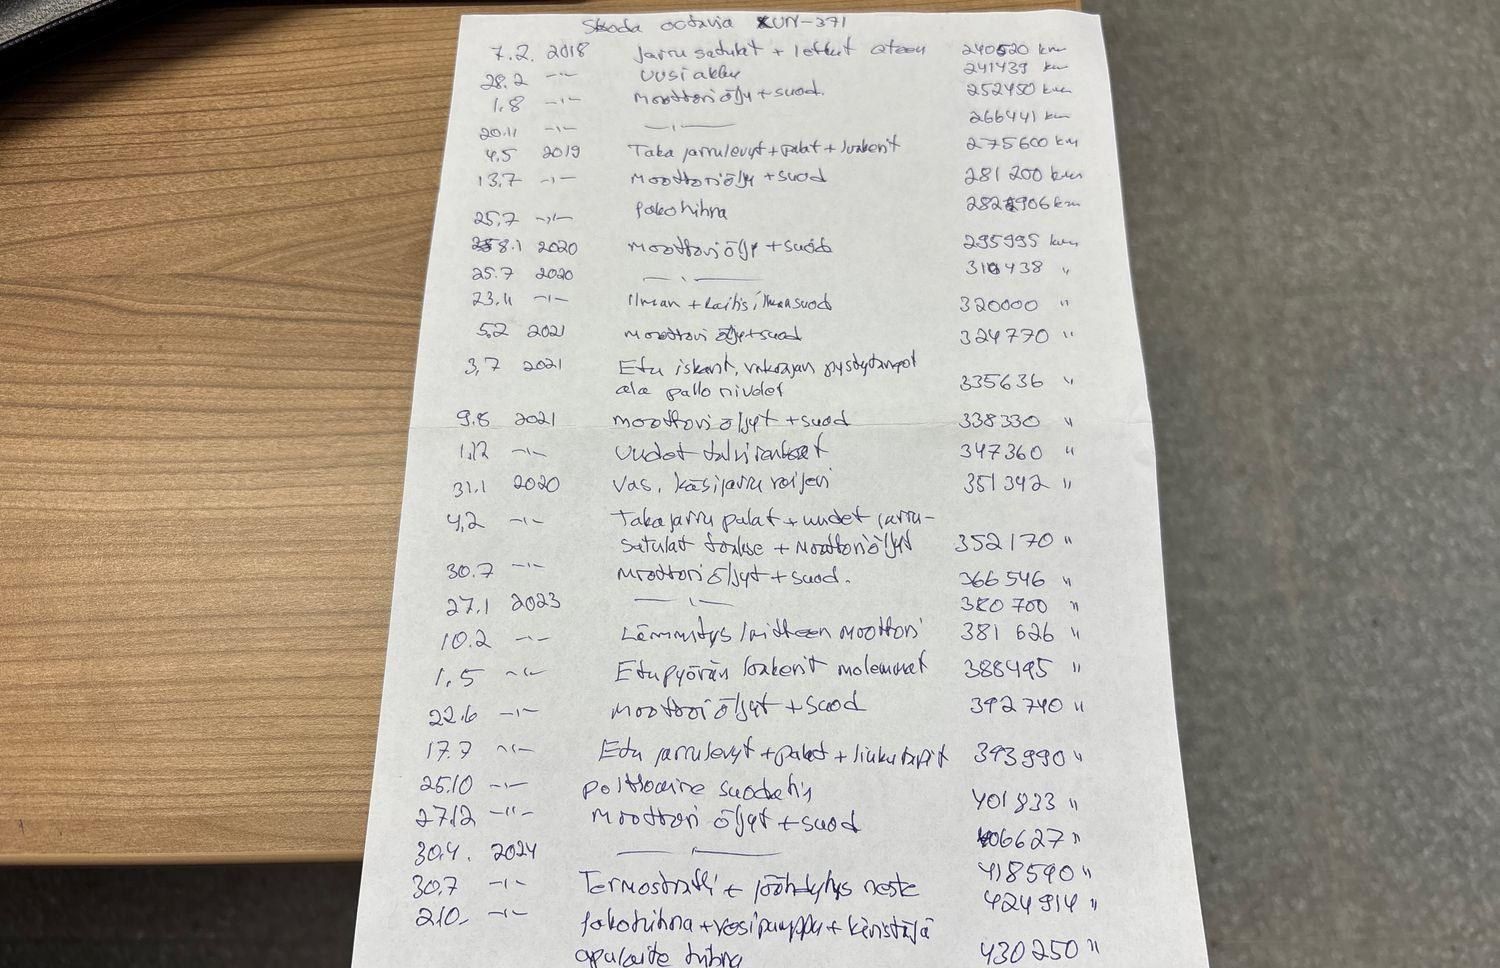 Skoda octavia XUN-371
7.2. 2018 Jarru satulat + letkut eteen 240520 km
28.2 -"- Uusi akku 241439 km
1.8 -"- Moottoriöljy + suod. 252450 km
20.11 -"- -"- 266441 km
4.5 2019 Taka jarrulevyt + palat + laakerit 275600 km
13.7 -"- Moottoriöljy + suod 281 200 km
25.7 -"- Jakohihna 282906 km
8.1 2020 Moottoriöljy + suod 295995 km
25.7 2020 -"- 310438 "
23.11 -"- Ilman + Raitis ilmasuod 320000 "
5.2 2021 Moottori öljy+suod 324770 "
3.7 2021 Etu iskarit, vakaajan pystytangot
ala pallo nivelet 335636 "
9.8 2021 Moottori öljyt + suod 338330 "
1.12 -"- Uudet talvirenkaat 347360 "
31.1 2020 Vas. käsijarru vaijeri 351342 "
4.2 -"- Taka jarru palat + uudet jarru-
satulat taakse + Moottoriöljyt 352170 "
30.7 -"- Moottoriöljyt + suod. 366546 "
27.1 2023 -"- 380 700 "
10.2 -"- Lämmitys laitteen moottori 381 626 "
1.5 -"- Etupyörän laakerit molemmat 388495 "
22.6 -"- Moottoriöljyt + suod 392740 "
17.7 -"- Etu jarrulevyt + palat + liukutapit 393990 "
25.10 -"- polttoaine suodatin 401833 "
27.12 -"- Moottori öljyt + suod 406627 "
30.4. 2024 -"- 418590 "
30.7 -"- Termostaatti + jäähdytys neste 424914 "
2.10. -"- Jakohihna + vesipumppu + kiristäjä
apulaite hihna 430250 "